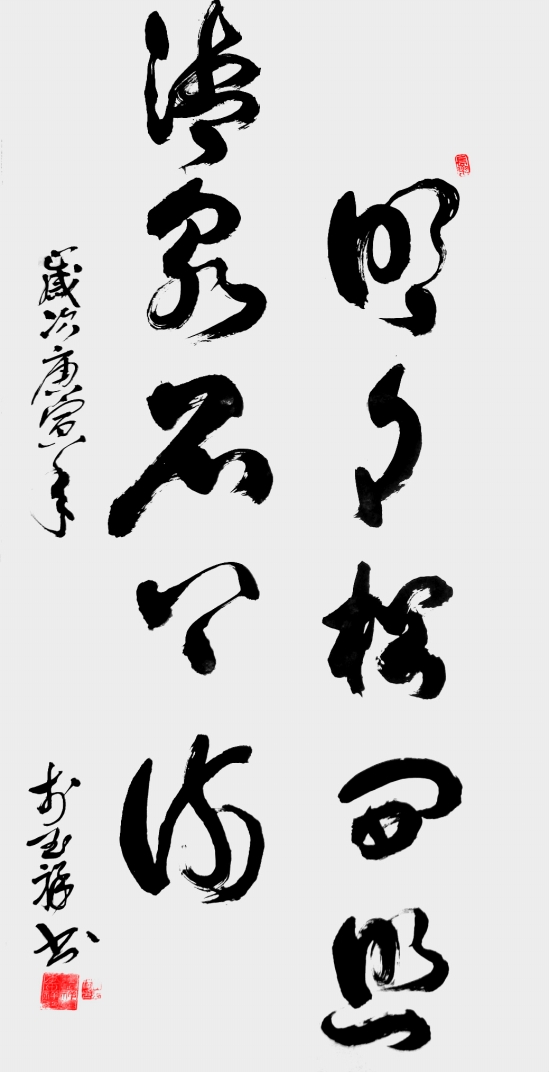 明月松间照
清泉石上流
歲次庚寅年
玉祥书